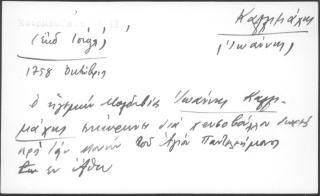 Καλλιμάχης
(Ἰωάννης)
1758 Ὀκτώβρις
ὁ ἡγεμὼν Μολδαβίας Ἰωάννης Καλλι-
μάχης διὰ χρυσοβούλλου
πρὸς τὴν μονὴν τοῦ Ἁγίου Παντελεήμονος
ἐν Ἄθῳ